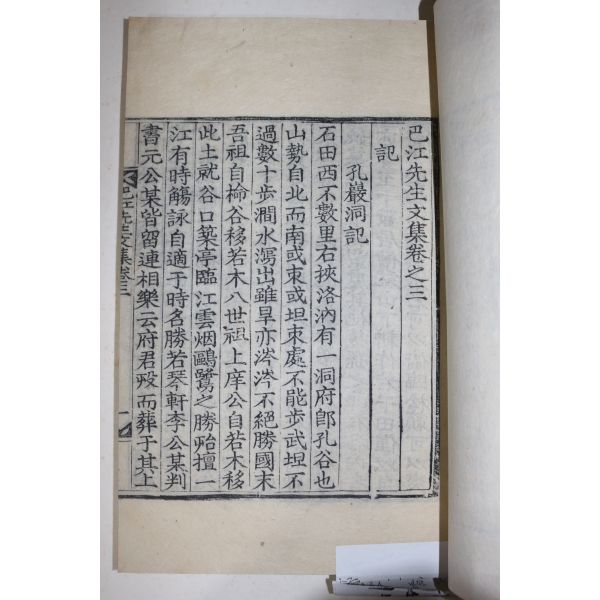 巴江先生文集卷之三
記
孔巖洞記
石田西不數里右挾洛汭有一洞府卽孔谷也
山勢自北而南或束或坦束處不能步武坦不
過數十步澗水瀉出雖旱亦涔涔不絕勝國末
吾祖自檜谷移若木八世祖上庠公自若木移
此土就谷口築亭臨江雲烟鷗鷺之勝殆擅一
江有時觴詠自適于時名勝若琴軒李公某判
書元公某皆留連相樂云府君歿而葬于其上
巴江先生文集卷三
一